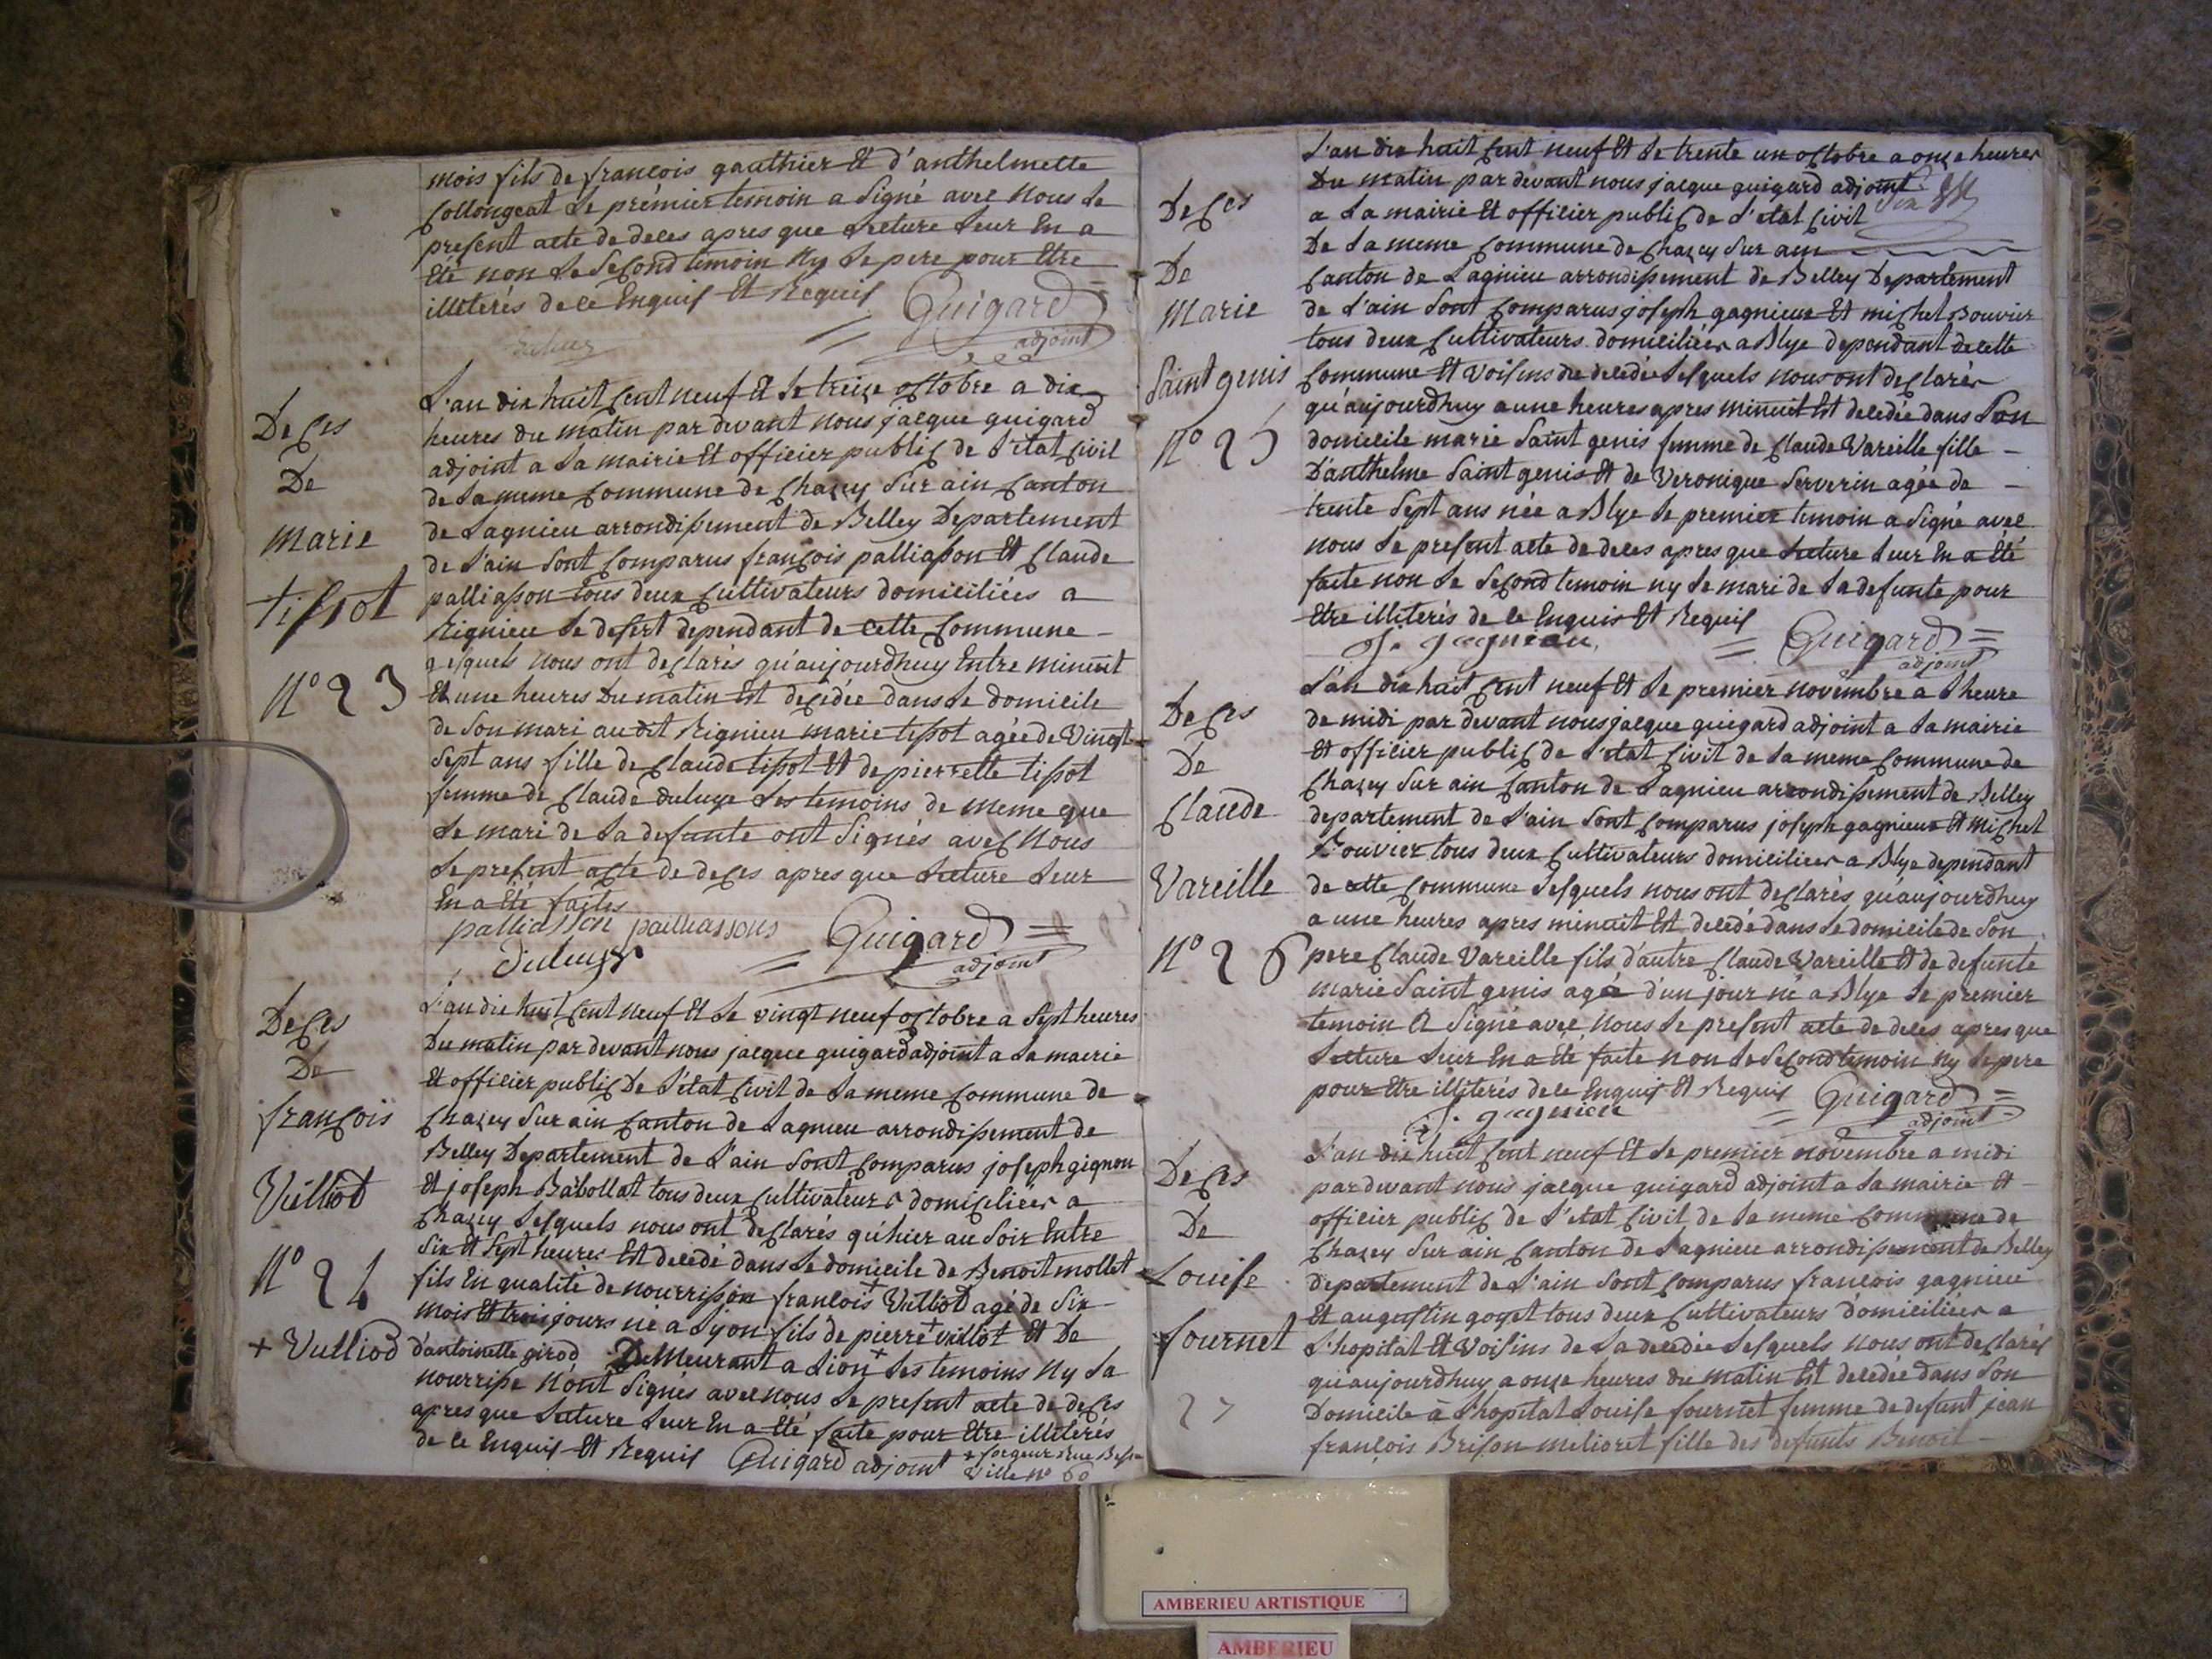 mois fils de francois gauthier Et d'anthelmette
Collongeat Le prémier temoin a Signé avec Nous Le
present acte de deces apres que Lecture Leur En a
Eté non Le Second temoin Ny Le pere pour Etre
illiterés de ce Enquis Et Requis Guigard
adjoint
Deces
De
Marie
tissot
N° 23
L'an dix huit Cent neuf Et Le treize octobre a dix
heures du matin par devant nous jacque guigard
adjoint a La mairie Et officier public de L'état Civil
de La meme Commune de Chazey Sur ain Canton
de Lagnieu arrondissement de Belley Departement
de L'ain Sont Comparus françois palliasson Et Claude
palliasson tous deux Cultivateurs domiciliées a
Rignieu Le desert dependant de cette Commune
Lesquels Nous ont declarés qu'aujourdhuy Entre minuit
Et une heures Du matin Est decedée dans Le domicile
de Son mari au dit Rignieu marie tissot agée de Vingt
Sept ans fille de Claude tissot Et de pierrette tissot
femme de Claude duluye Les temoins de meme que
Le mari de La defunte ont Signés avec Nous
Le present acte de deces apres que Lecture Leur
En a Eté faites
palliasson pailliassous Guigard
adjoint
Deces
De
françois
Vulliot
N° 24
+ Vulliod
L'an dix huit Cent Neuf Et Le vingt neuf octobre a Sept heures
Du matin par devant nous jacque guigard adjoint a La mairie
Et officier public De L'état Civil de La meme Commune de
Chazey Sur ain Canton de Lagnieu arrondissement de
Belley Departement de L'ain Sont Comparus joseph gignon
Et joseph Babollat tous deux Cultivateurs domiciliées a
Chazey Lesquels nous ont declarés qu'hier au Soir Entre
Six Et Sept heures Est decedé dans Le domicile de Benoit mollet
fils En qualité de nourrisson francois + Vulliod agé de Six
mois Et trois jours né a Lyon fils de pierre + villot Et De
d'antoinette girod Demeurant a Lion + Les temoins Ny La
nourrisse N'ont Signés avec nous Le present acte de deces
apres que Lecture Leur En a Eté faite pour Etre illiterés
de ce Enquis Et Requis Guigard adjoint + forgeur Rue
Ville n° 60
Deces
De
Marie
Saint genis
N° 25
L'an dix huit Cent neuf Et Le trente un octobre a onze heures
Du matin par devant nous jacque guigard adjoint
a La mairie Et officier public de L'etat Civil
De La meme Commune de Chazey Sur ain
Canton de Lagnieu arrondissement de Belley Departement
de L'ain Sont Comparus joseph gagnieux Et michel Bouvier
tous deux Cultivateurs domiciliées a Blye dependant de cette
Commune Et Voisins du decedée Lesquels nous ont declarés
qu'aujourdhuy a une heures apres minuit Est decedée dans Son
domicile marie Saint genis femme de Claude Vareille fille
D'anthelme Saint genis Et de Veronique Serverin agée de
trente Sept ans née a Blye Le premier temoin a Signé avec
nous Le present acte de deces apres que Lecture Leur En a Eté
faite non Le Second temoin ny Le mari de La defunte pour
Etre illiterés de ce Enquis Et Requis
J. gagnieu Guigard
adjoint
Deces
De
Claude
Vareille
N° 26
L'an dix huit Cent neuf Et Le premier novembre a L'heure
de midi par devant nous jacque guigard adjoint a La mairie
Et officier public de L'etat Civil de La meme Commune de
Chazey Sur ain Canton de Lagnieu arrondissement de Belley
departement de L'ain Sont Comparus joseph gagnieux Et michel
Bouvier tous deux Cultivateurs domiciliées a Blye dependant
de cette Commune Lesquels nous ont declarés qu'aujourdhuy
a une heures apres minuit Est decedé dans Le domicile de Son
pere Claude Vareille fils d'autre Claude Vareille Et de defunte
marie Saint genis agée d'un jour né a Blye Le premier
temoin A Signé avec Nous Le present acte de deces apres que
Lecture Leur En a Eté faite non Le Second temoin Ny Le pere
pour Etre illiterés de ce Enquis Et Requis Guigard
J. gagnieu adjoint
Deces
De
Louise
fournet
27
L'an dix huit Cent neuf Et Le premier novembre a midi
par devant nous jacque guigard adjoint a La mairie Et
officier public de L'etat Civil de La meme Commune de
Chazey Sur ain Canton de Lagnieu arrondissement de Belley
departement de L'ain Sont Comparus francois gagnieu
Et augustin goyet tous deux Cultivateurs domiciliées a
L'hopital Et Voisins de La decedée Lesquels Nous ont declarés
qu'aujourdhuy a onze heures du matin Est decedée dans Son
Domicile à L'hopital Louise fournet femme de defunt jean
françois Brison melioret fille des defunts Benoit
AMBERIEU ARTISTIQUE
AMBERIEU